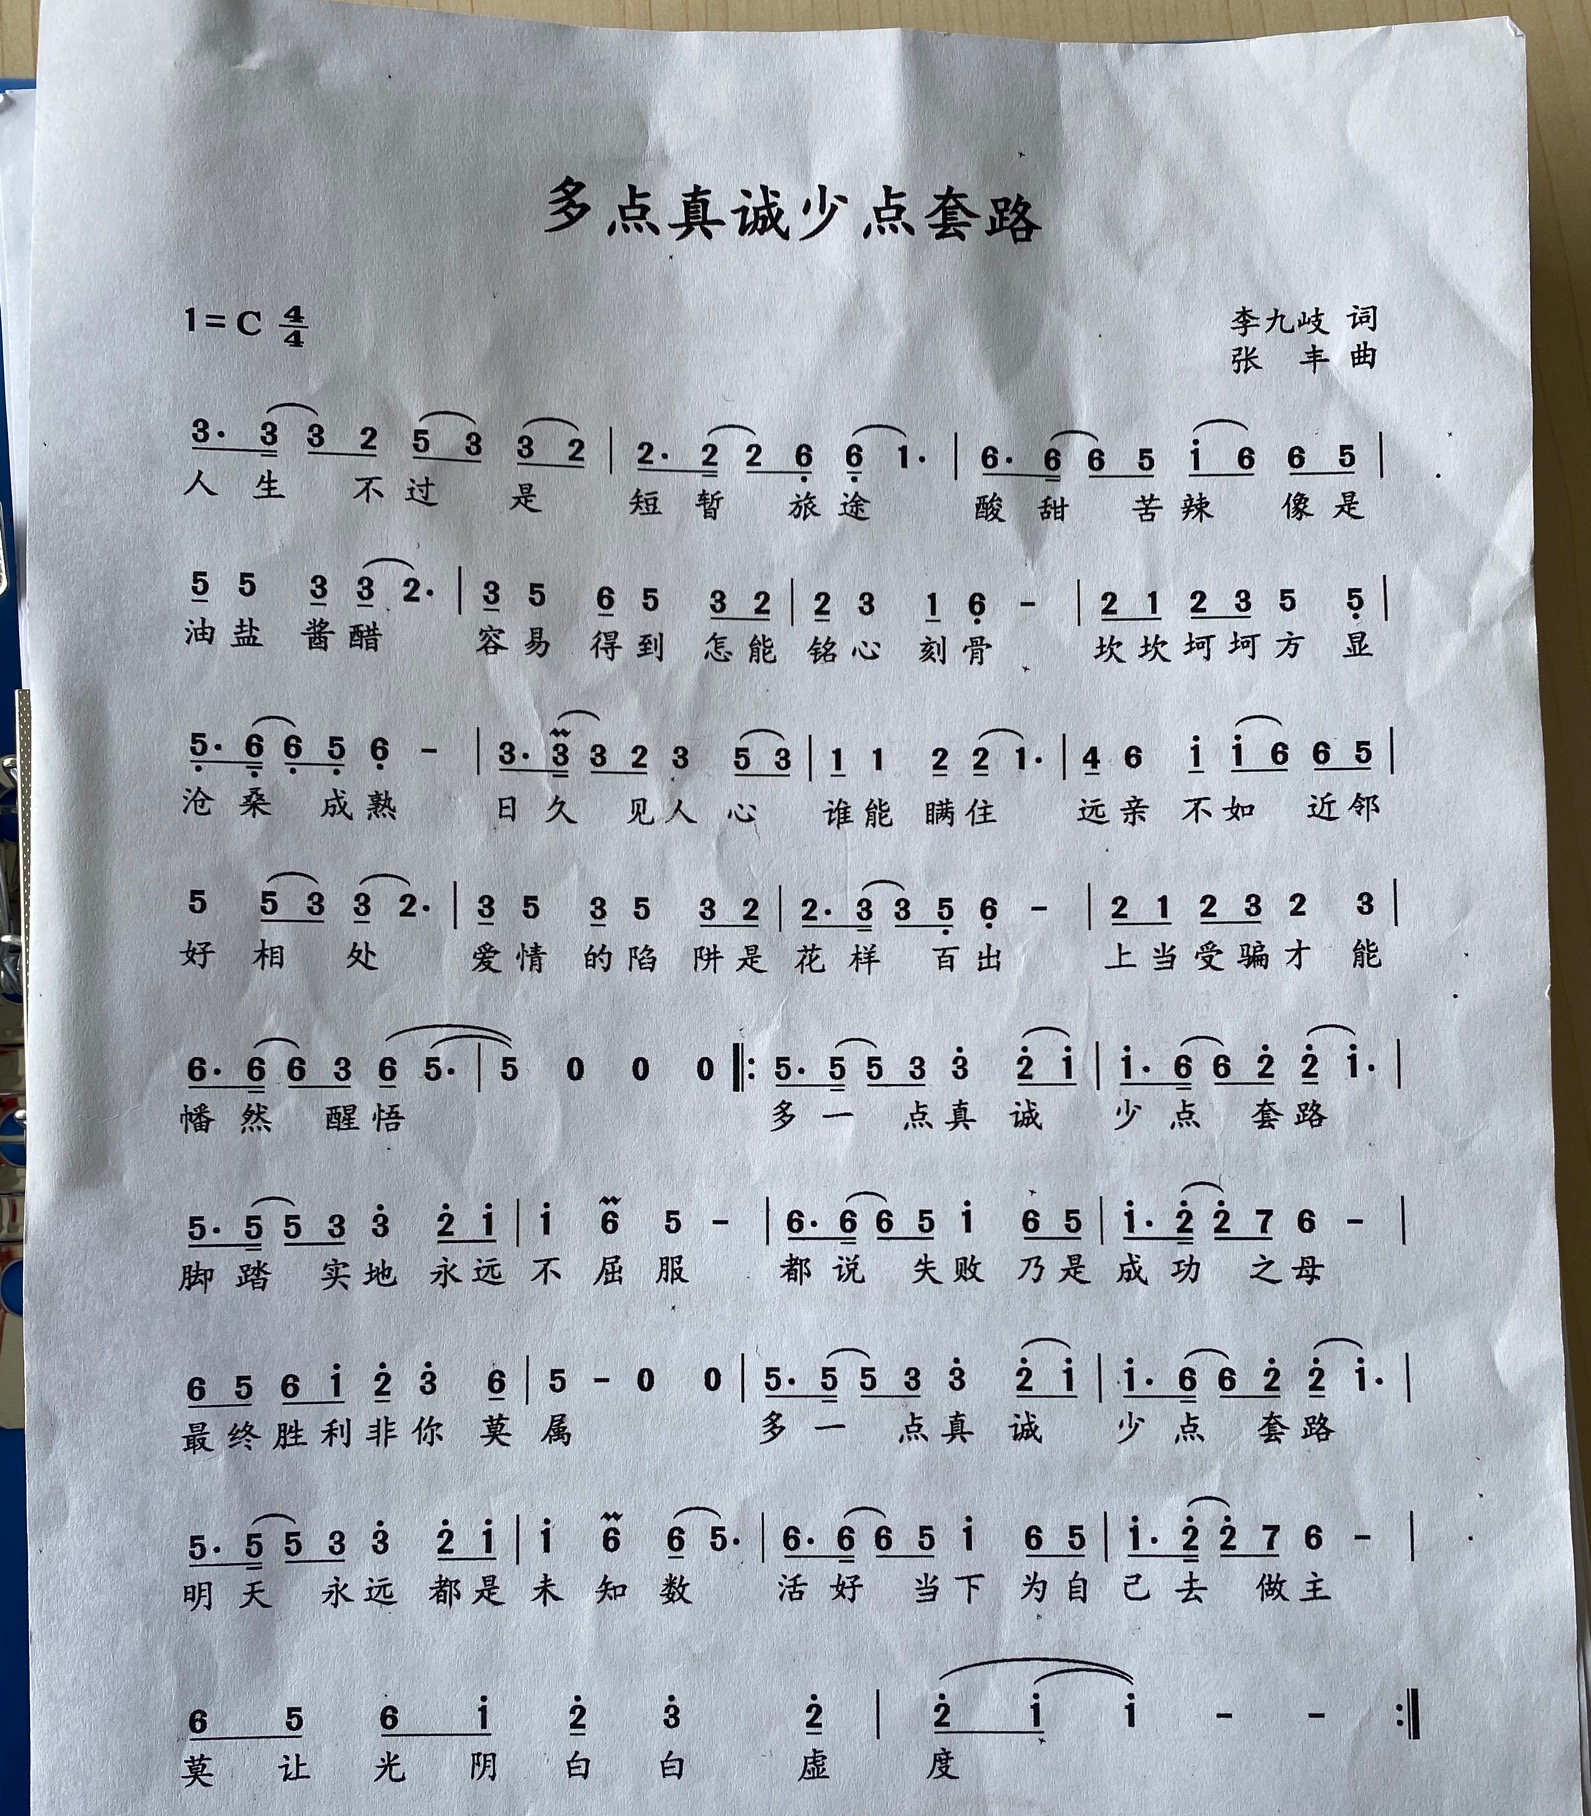 多点真诚少点套路
1=C 4/4
李九岐 词
张 丰 曲
3. 3 3 2 5 3 3 2 | 2. 2 2 6̣ 6̣ 1. | 6. 6 6 5 i 6 6 5 |
人 生 不过 是 短 暂 旅途 酸 甜 苦辣 像是
5 5 3 3 2. | 3 5 6 5 3 2 | 2 3 1 6̣ - | 2 1 2 3 5 5̣ |
油盐 酱醋 容易 得到 怎能 铭心 刻骨 坎坎坷坷方 显
5̣. 6̣ 6̣ 5̣ 6̣ - | 3. 3 3 2 3 5 3 | 1 1 2 2 1. | 4 6 i i 6 6 5 |
沧 桑 成熟 日 久 见人 心 谁能 瞒住 远亲 不如 近邻
5 5 3 3 2. | 3 5 3 5 3 2 | 2. 3 3 5̣ 6̣ - | 2 1 2 3 2 3 |
好 相 处 爱情 的陷 阱是 花 样 百出 上当受骗才 能
6. 6 6 3 6 5. | 5 0 0 0 ‖: 5. 5 5 3 3̇ 2̇ i | i. 6 6 2̇ 2̇ i. |
幡 然 醒悟 多 一 点真 诚 少 点 套路
5. 5 5 3 3̇ 2̇ i | i 6 5 - | 6. 6 6 5 i 6 5 | i. 2̇ 2̇ 7 6 - |
脚 踏 实地 永远 不 屈 服 都 说 失败 乃是 成 功 之母
6 5 6 i 2̇ 3̇ 6 | 5 - 0 0 | 5. 5 5 3 3̇ 2̇ i | i. 6 6 2̇ 2̇ i. |
最终胜利非你 莫 属 多 一 点真 诚 少 点 套路
5. 5 5 3 3̇ 2̇ i | i 6 6 5. | 6. 6 6 5 i 6 5 | i. 2̇ 2̇ 7 6 - |
明 天 永远 都是 未 知 数 活 好 当下 为自 己 去 做主
6 5 6 i 2̇ 3̇ 2̇ | 2̇ i i - - :‖
莫 让 光 阴 白 白 虚 度